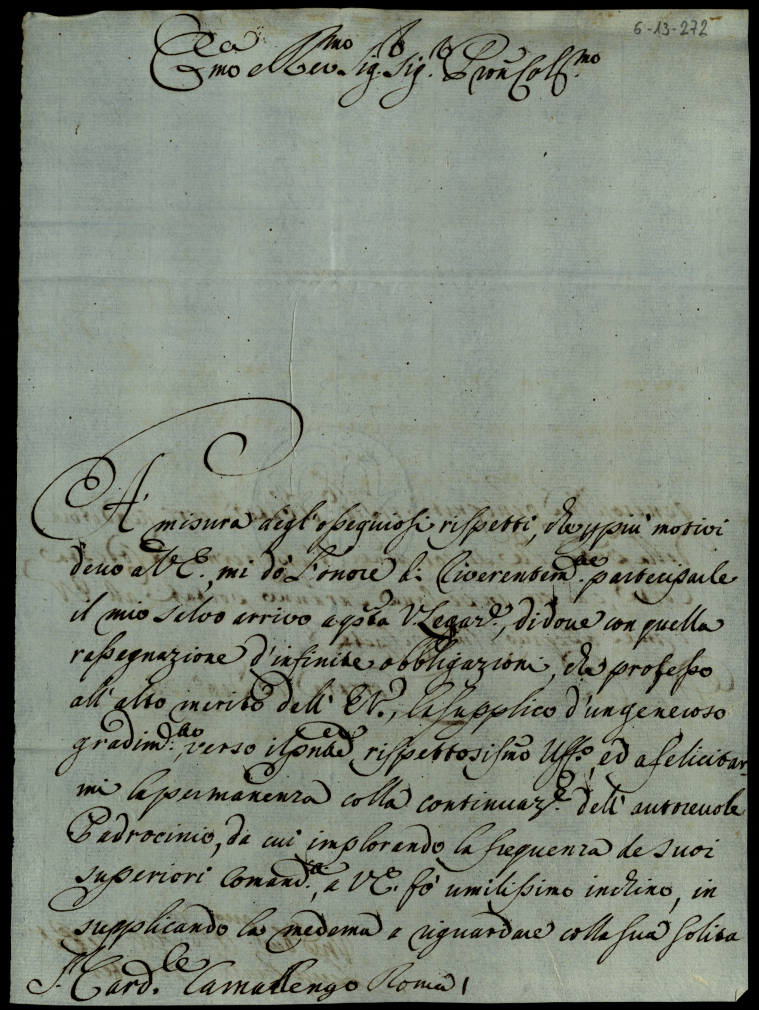 6-13-272
Em.mo e Rev.mo Sig. Sig.r Pron Col.mo
A' misura degl'ossequiosi rispetti, che p più motivi
devo a V.E. mi dò l'onore di riverentem.te partecipaile
il mio salvo arrivo a q.sta V.Legaz.e, di dove con quella
rassegnazione d'infinite obbligazioni, che professo
all'alto merito dell'E.V., la supplico d'un generoso
gradim.to verso il pnte rispettosissmo Uff.o, ed a felicitar-
mi la permanenza colla continuaz.e dell'autorevole
Padrocinio, da cui implorando la frequenza de suoi
superiori Comand.i, a V.E. fò umilissimo inchino, in
supplicando la medema a riguardare colla sua solita
S.r Card.le Camarlengo Roma